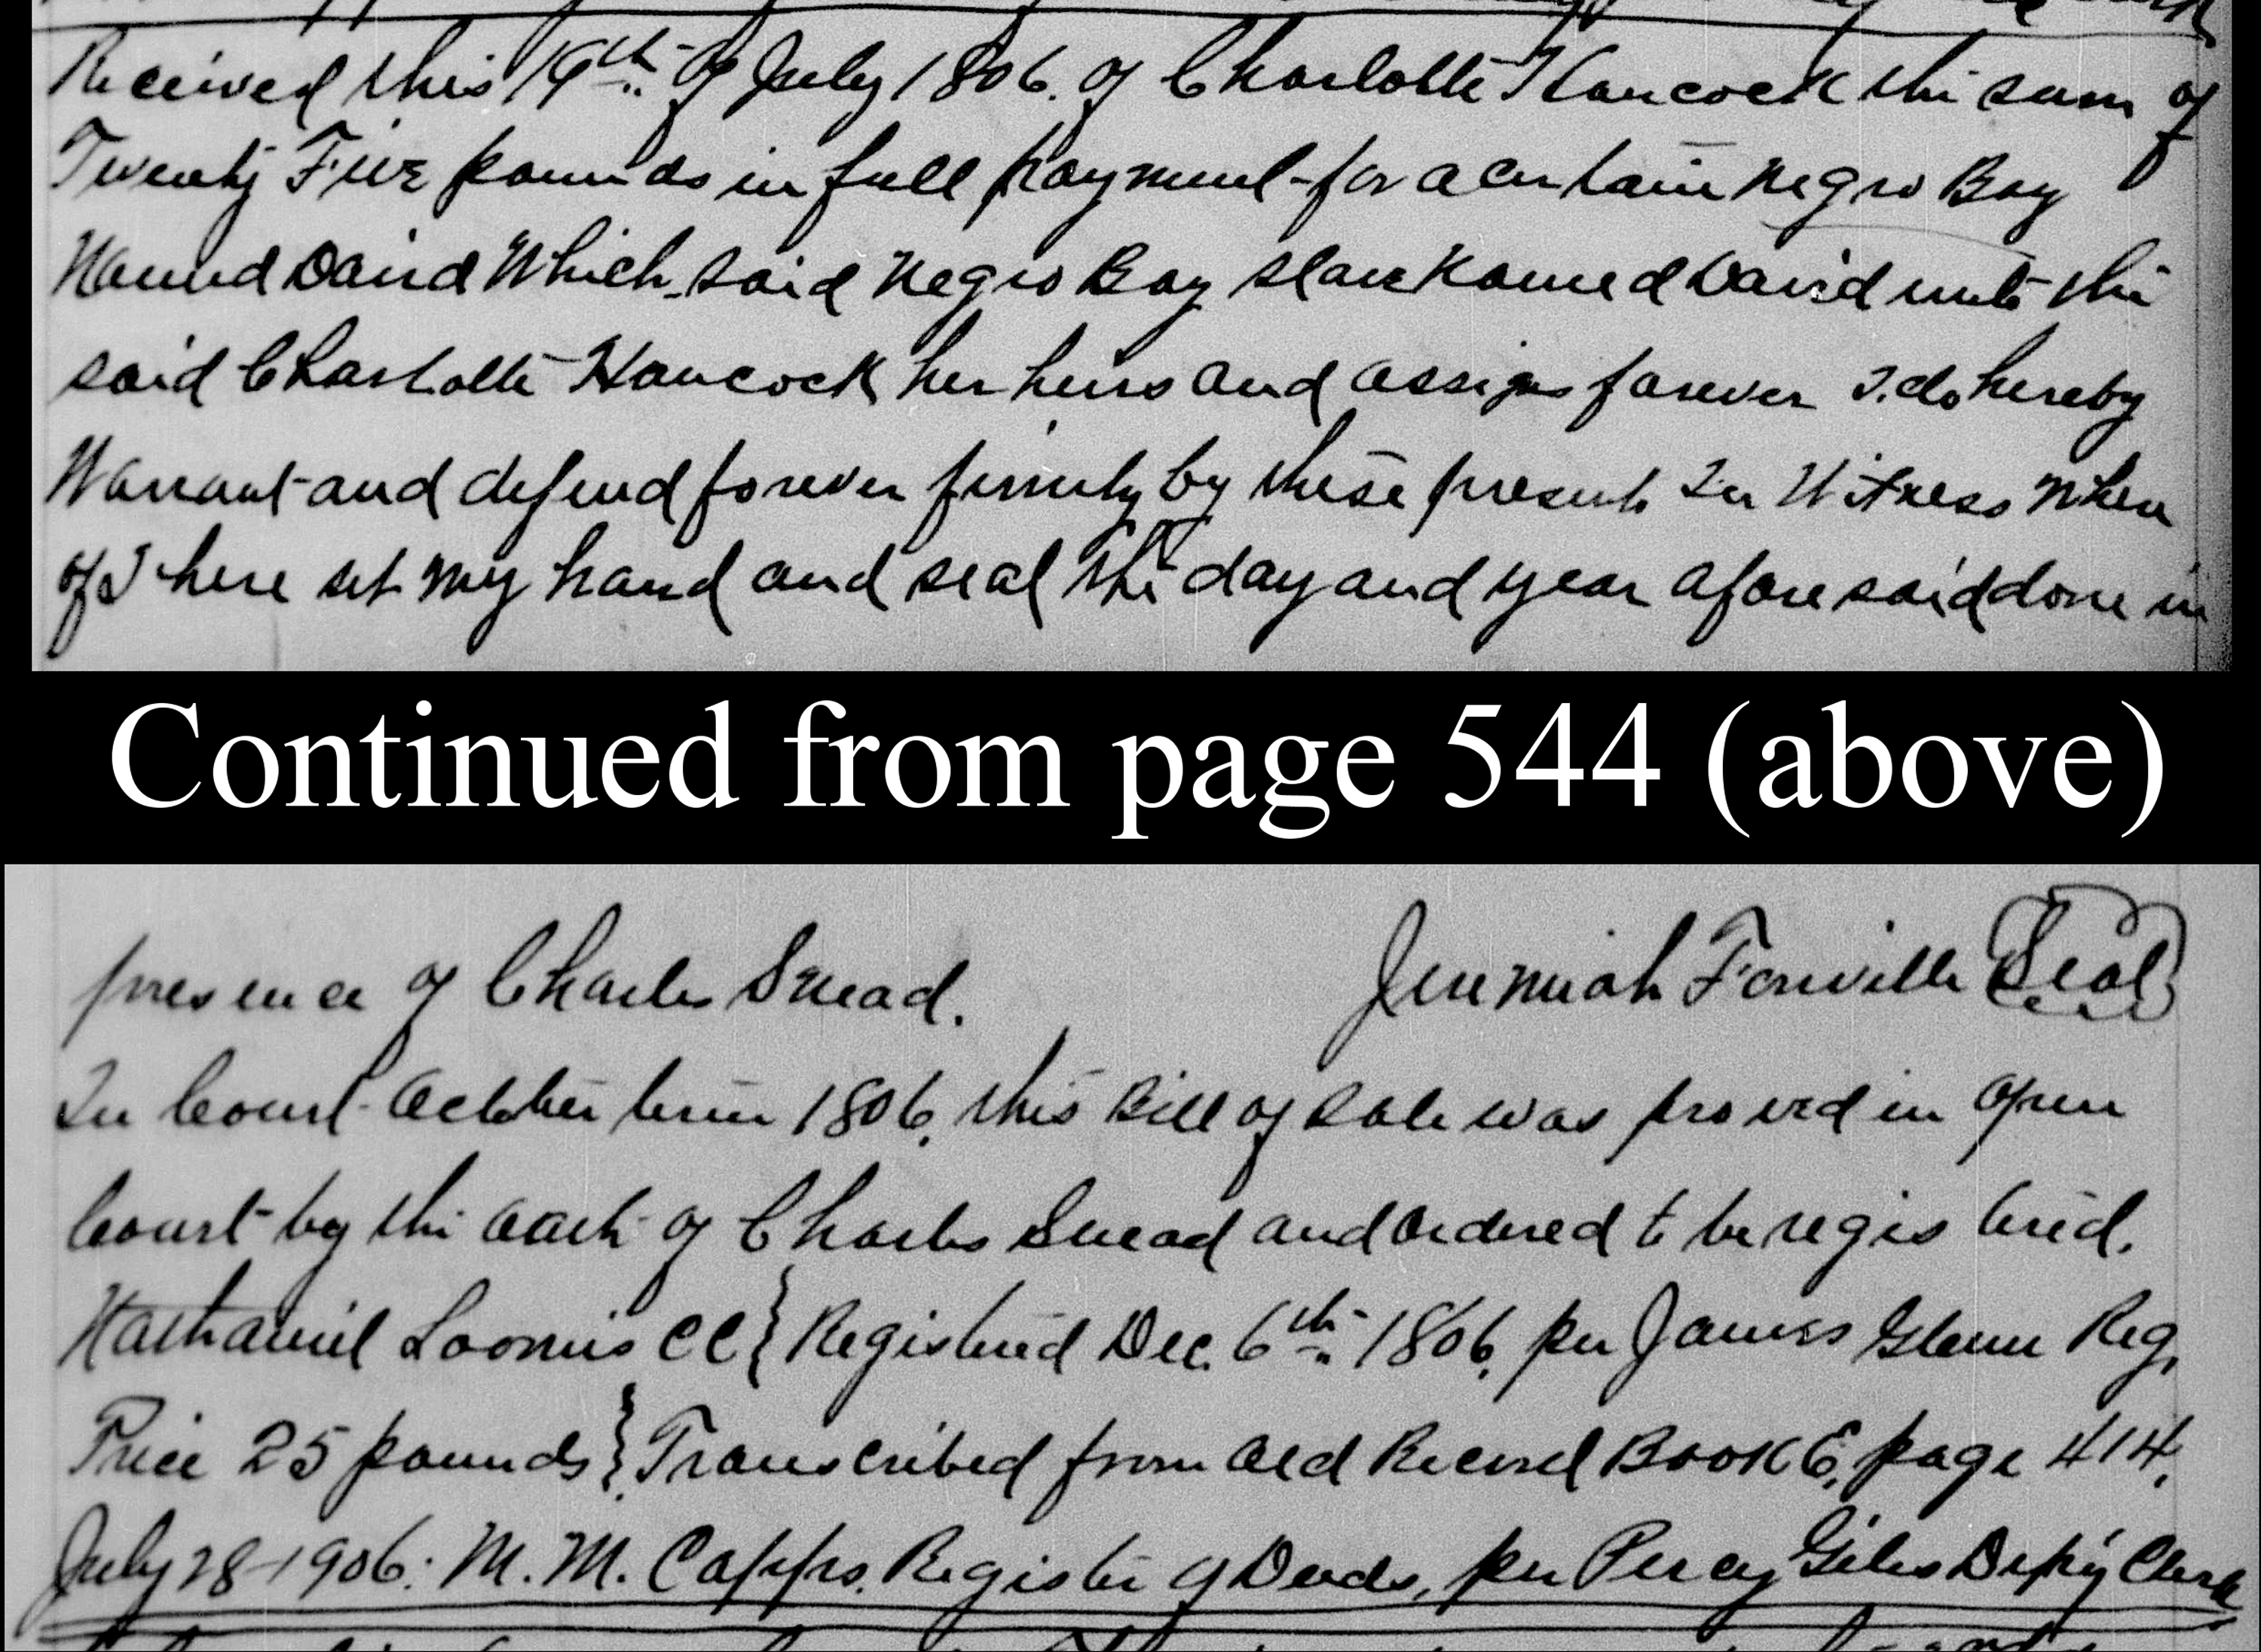 Received this 19th of July 1806. of Charlotte Hancock the sum of
Twenty Five pounds in full payment for a certain Negro Boy
Named David Which said Negro Boy slave Named David unto the
said Charlotte Hancock her heirs and assigns forever I do hereby
Warrant and defend forever firmly by these presents In Witness When
of I here set my hand and seal the day and year afore said done in
Continued from page 544 (above)
presence of Charles Snead. Jeremiah Fonville Seal
In Court October term 1806, this Bill of sale was proved in open
Court by the oath of Charles Snead and ordered to be registered.
Nathaniel Loomis CC} Registered Dec. 6th 1806, per James Glenn Reg,
Price 25 pounds} Transcribed from Old Record Book 6, page 414,
July 28-1906. M. M. Capps, Register of Deeds, per Percy Giles Dep'y Clerk